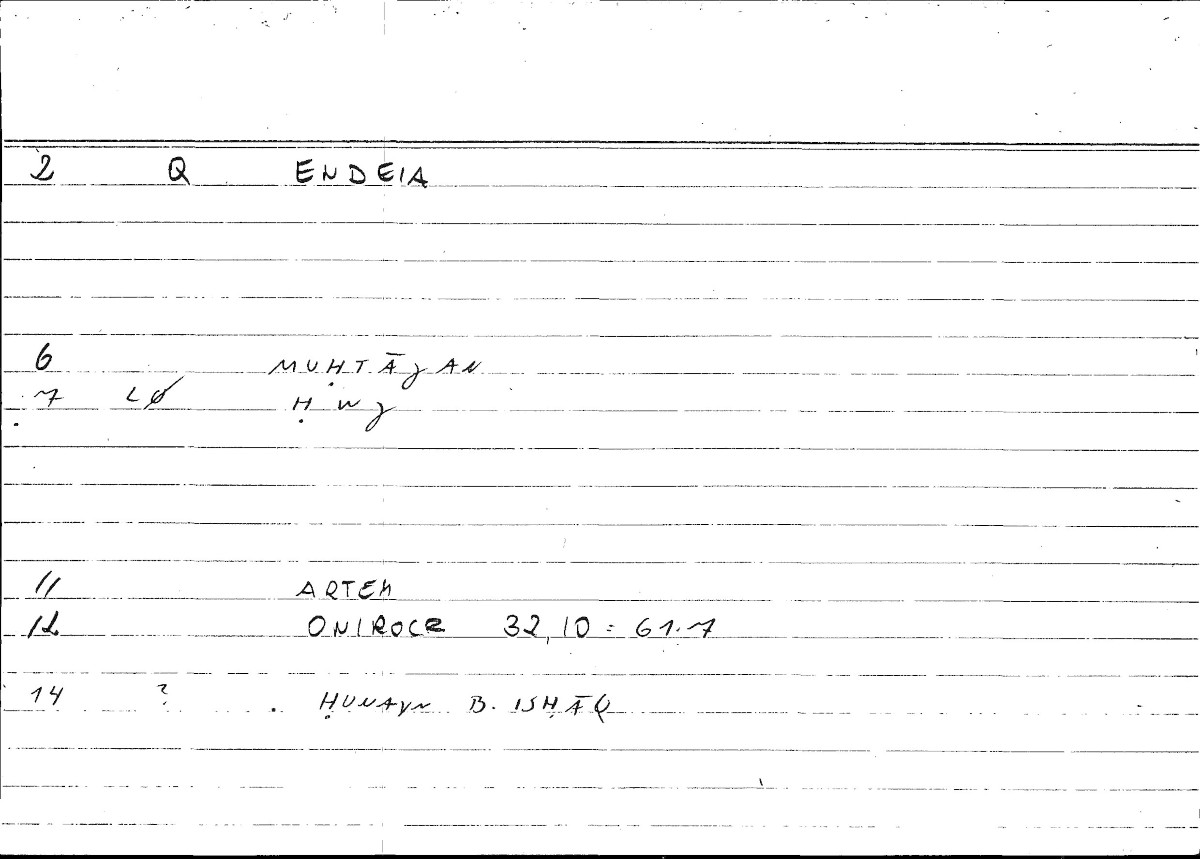 2 Q ENDEIA
6 MUḤTĀJAN
7 LØ ḤWJ
11 ARTEM
12 ONIROCR 32,10 = 61.7
14 ? ḤUNAYN B. ISḤĀQ